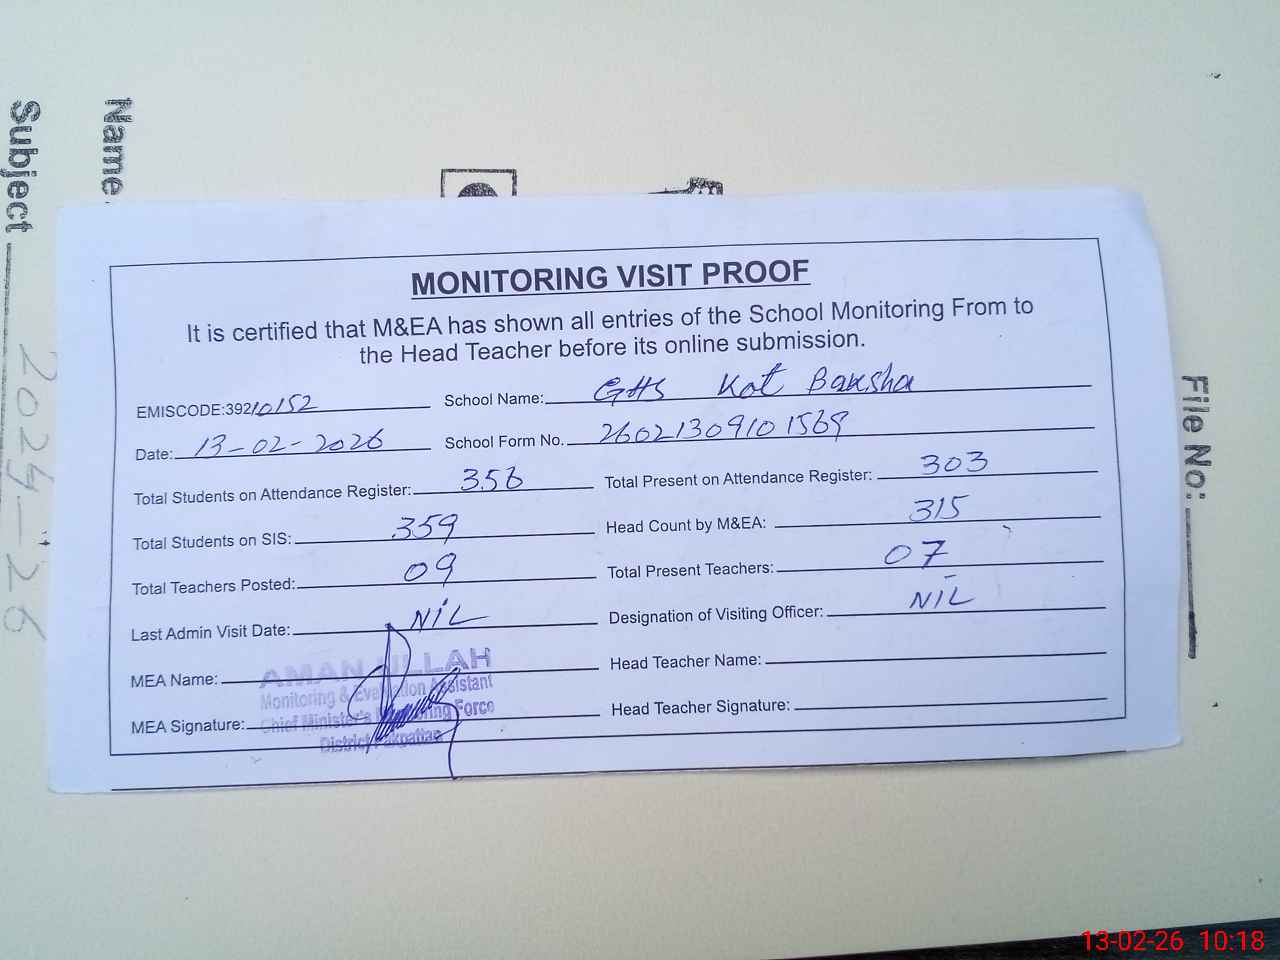 Subject
Name.
2024-26
File No:
MONITORING VISIT PROOF
It is certified that M&EA has shown all entries of the School Monitoring From to
the Head Teacher before its online submission.
EMISCODE:39210152 School Name: GHS Kot Baksha
Date: 13-02-2026 School Form No. 26021309101569
Total Students on Attendance Register: 356 Total Present on Attendance Register: 303
Total Students on SIS: 359 Head Count by M&EA: 315
Total Teachers Posted: 09 Total Present Teachers: 07
Last Admin Visit Date: NIL Designation of Visiting Officer: NIL
MEA Name: AMAN ULLAH Head Teacher Name:
Monitoring & Evaluation Assistant
MEA Signature: Chief Minister's Monitoring Force Head Teacher Signature:
District Pakpattan
13-02-26 10:18